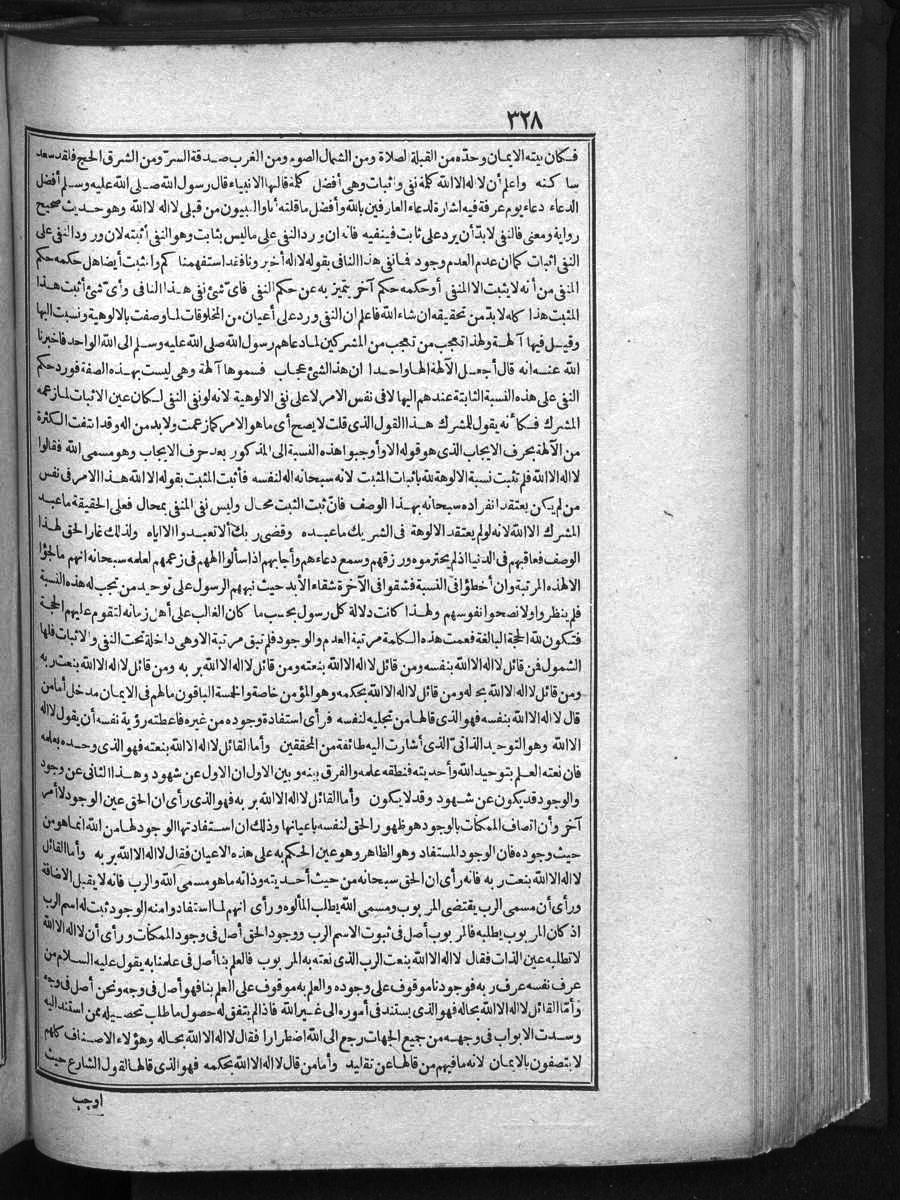 ٣٢٨
فكان بيته الايمان وحدّه من القبلة الصلاة ومن الشمال الصوم ومن الغرب صدقة السرّ ومن الشرق الحج فلقد سعد
ساكنه واعلم أن لا اله الا الله كلمة نفى واثبات وهى أفضل كلمة قالها الانبياء قال رسول الله صلى الله عليه وسلم أفضل
الدعاء دعاء يوم عرفة فيه اشارة لدعاء العارفين بالله وأفضل ما قلته أنا والنبيون من قبلى لا اله الا الله وهو حديث صحيح
رواية ومعنى فالنفى لا بدّ أن يرد على ثابت فينفيه فانه ان ورد النفى على ما ليس بثابت وهو النفى أثبته لان ورود النفى على
النفى اثبات كما ان عدم العدم وجود فانفى هذا النافى بقوله لا اله أخبرونا فقد استفهمنا كم والمثبت أيضا هل حكمه حكم
المنفى من أنه لا يثبت الا المنفى أو حكمه حكم آخر يتميز به عن حكم النفى فأىّ شئ نفى هذا النافى وأىّ شئ أثبت هذا
المثبت هذا كله لا بدّ من تحقيقه ان شاء الله فاعلم ان النفى ورد على أعيان من المخلوقات لما وصفت بالالوهية ونسبت اليها
وقيل فيها آلهة ولهذا تعجب من تعجب من المشركين لما دعاهم رسول الله صلى الله عليه وسلم الى الله الواحد فاخبرنا
الله عنه انه قال أجعل الآلهة الها واحدا ان هذا لشئ عجاب فسموها آلهة وهى ليست بهذه الصفة فورد حكم
النفى على هذه النسبة الثابتة عندهم اليها لا فى نفس الامر لا على نفى الالوهية لانه لو نفى النفى لكان عين الاثبات لما زعمه
المشرك فكأنه يقول للمشرك هذا القول الذى قلت لا يصح أى ما هو الامر كما زعمت ولا بد من اله وقد انتفت الكثرة
من الآلهة بحرف الايجاب الذى هو قوله الا وأوجبوا هذه النسبة الى المذكور بعد حرف الايجاب وهو مسمى الله فقالوا
لا اله الا الله فلم تثبت نسبة الالوهة لله باثبات المثبت لانه سبحانه اله لنفسه فأثبت المثبت بقوله الا الله هذا الامر فى نفس
من لم يكن يعتقد انفراده سبحانه بهذا الوصف فان ثبت الثبت محال وليس نفى المنفى بمحال فعلى الحقيقة ما عبد
المشرك الا الله لانه لو لم يعتقد الالوهة فى الشريك ما عبده وقضى ربك ألا تعبدوا الا اياه ولذلك غار الحق لهذا
الوصف فعاقبهم فى الدنيا اذ لم يحترموه ورزقهم وسمع دعاءهم وأجابهم اذا سألوا الههم فى زعمهم لعلمه سبحانه انهم ما لجؤا
الا لهذه المرتبة وان أخطؤا فى النسبة فشقوا فى الآخرة شقاء الأبد حيث نبههم الرسول على توحيد من تجب له هذه النسبة
فلم ينظروا ولا نصحوا نفوسهم ولهذا كانت دلالة كل رسول بحسب ما كان الغالب على أهل زمانه لتقوم عليهم الحجة
فتكون لله الحجة البالغة فعمت هذه الكلمة مرتبة العدم والوجود فلم تبق مرتبة الا وهى داخلة تحت النفى والاثبات فلها
الشمول فمن قائل لا اله الا الله بنفسه ومن قائل لا اله الا الله بنعته ومن قائل لا اله الا الله بربه ومن قائل لا اله الا الله بنعت ربه
ومن قائل لا اله الا الله بحاله ومن قائل لا اله الا الله بحكمه وهو المؤمن خاصة والخمسة الباقون ما لهم فى الايمان مدخل أما من
قال لا اله الا الله بنفسه فهو الذى قالها من تجليه لنفسه فرأى استفادة وجوده من غيره فاعطته رؤية نفسه أن يقول لا اله
الا الله وهو التوحيد الذاتىّ الذى أشارت اليه طائفة من المحققين وأما القائل لا اله الا الله بنعته فهو الذى وحده بعلمه
فان نعته العلم بتوحيد الله وأحديته فنطقه علمه والفرق بينه وبين الاول ان الاول عن شهود وهذا الثانى عن وجود
والوجود قد يكون عن شهود وقد لا يكون وأما القائل لا اله الا الله بربه فهو الذى رأى ان الحق عين الوجود لا أمر
آخر وأن اتصاف الممكنات بالوجود هو ظهور الحق لنفسه باعيانها وذلك ان استفادتها الوجود لها من الله انما هو من
حيث وجوده فان الوجود المستفاد وهو الظاهر وهو عين الحكم به على هذه الاعيان فقال لا اله الا الله بربه وأما القائل
لا اله الا الله بنعت ربه فانه رأى ان الحق سبحانه من حيث أحديته وذاته ما هو مسمى الله والرب فانه لا يقبل الاضافة
ورأى أن مسمى الرب يقتضى المربوب ومسمى الله يطلب المألوه ورأى انهم لما استفادوا منه الوجود ثبت له اسم الرب
اذ كان المربوب يطلبه فالمربوب أصل فى ثبوت الاسم الرب ووجود الحق أصل فى وجود الممكنات ورأى أن لا اله الا الله
لا تطلبه عين الذات فقال لا اله الا الله بنعت الرب الذى نعته به المربوب فالعلم بنا أصل فى علمنا به يقول عليه السلام من
عرف نفسه عرف ربه فوجودنا موقوف على وجوده والعلم به موقوف على العلم بنا فهو أصل فى وجه ونحن أصل فى وجه
وأما القائل لا اله الا الله بحاله فهو الذى يستند فى أموره الى غير الله فاذا لم يتفق له حصول ما طلب تحصيله ممن استند اليه
وسدت الابواب فى وجهه من جميع الجهات رجع الى الله اضطرارا فقال لا اله الا الله بحاله وهؤلاء الاصناف كلهم
لا يتصفون بالايمان لانه ما فيهم من قالها عن تقليد وأما من قال لا اله الا الله بحكمه فهو الذى قالها لقول الشارع حيث
اوجب